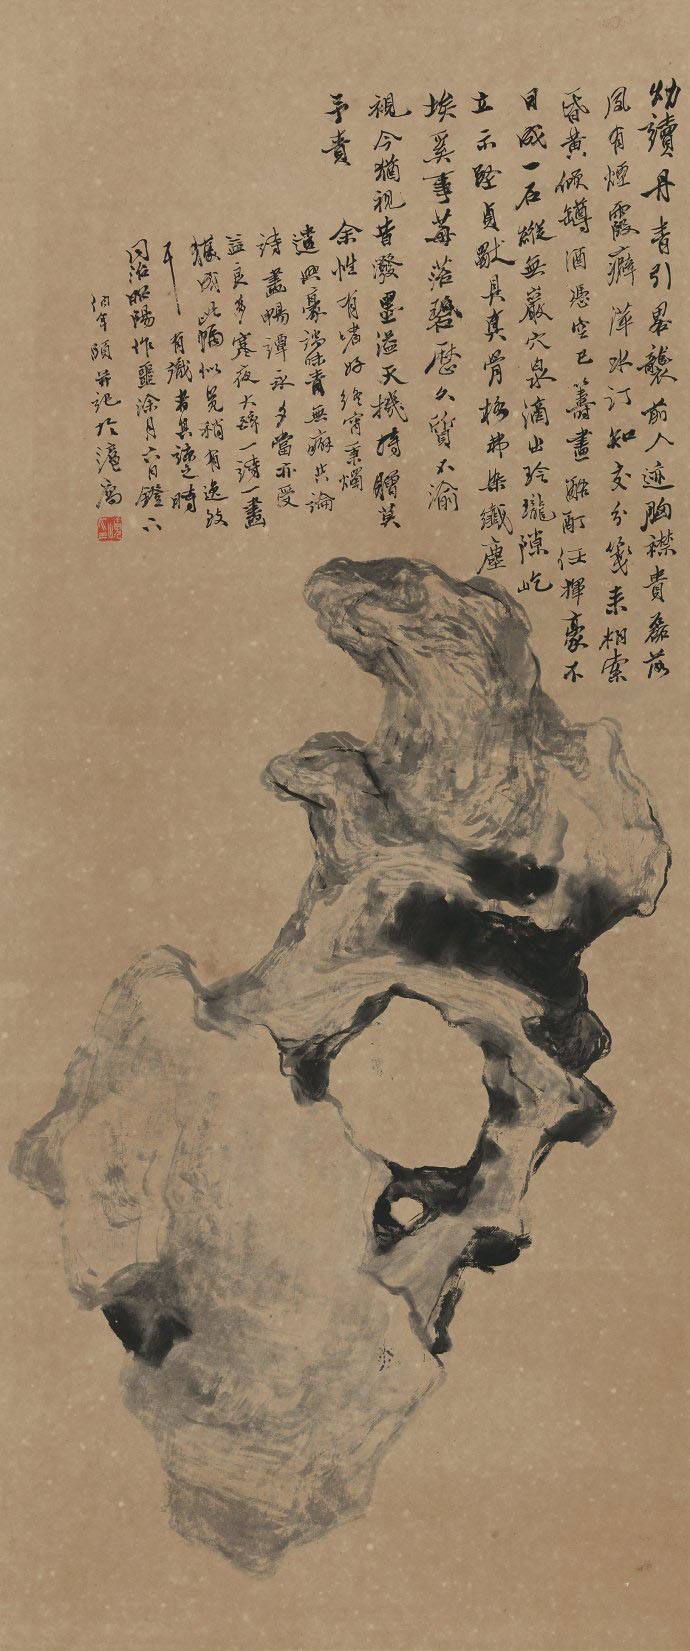 幼讀丹青引畧襲前人迹胸襟貴磊落
夙有煙霞癖萍水訂知交分箋來相索
昏黃傾罇酒憑空已籌畫酩酊任揮豪不
日成一石縱無巖穴泉滴出玲瓏隙屹
立示堅貞猒具真骨格弗染纖塵
埃奚事莓苔碧歷久質不渝
視今猶視昔潑墨溢天機持贈莫
予責
余性有嗜好終宵秉燭
遣興豪端 無癖共論
詩畫暢譚永夕當亦受
益良多寒夜大醉一詩一畫
獲成此幅似覺稍有逸致
耳 有識者其諒之時
同治昭陽作噩涂月六日鐙下
伯年頤并記於滬寓